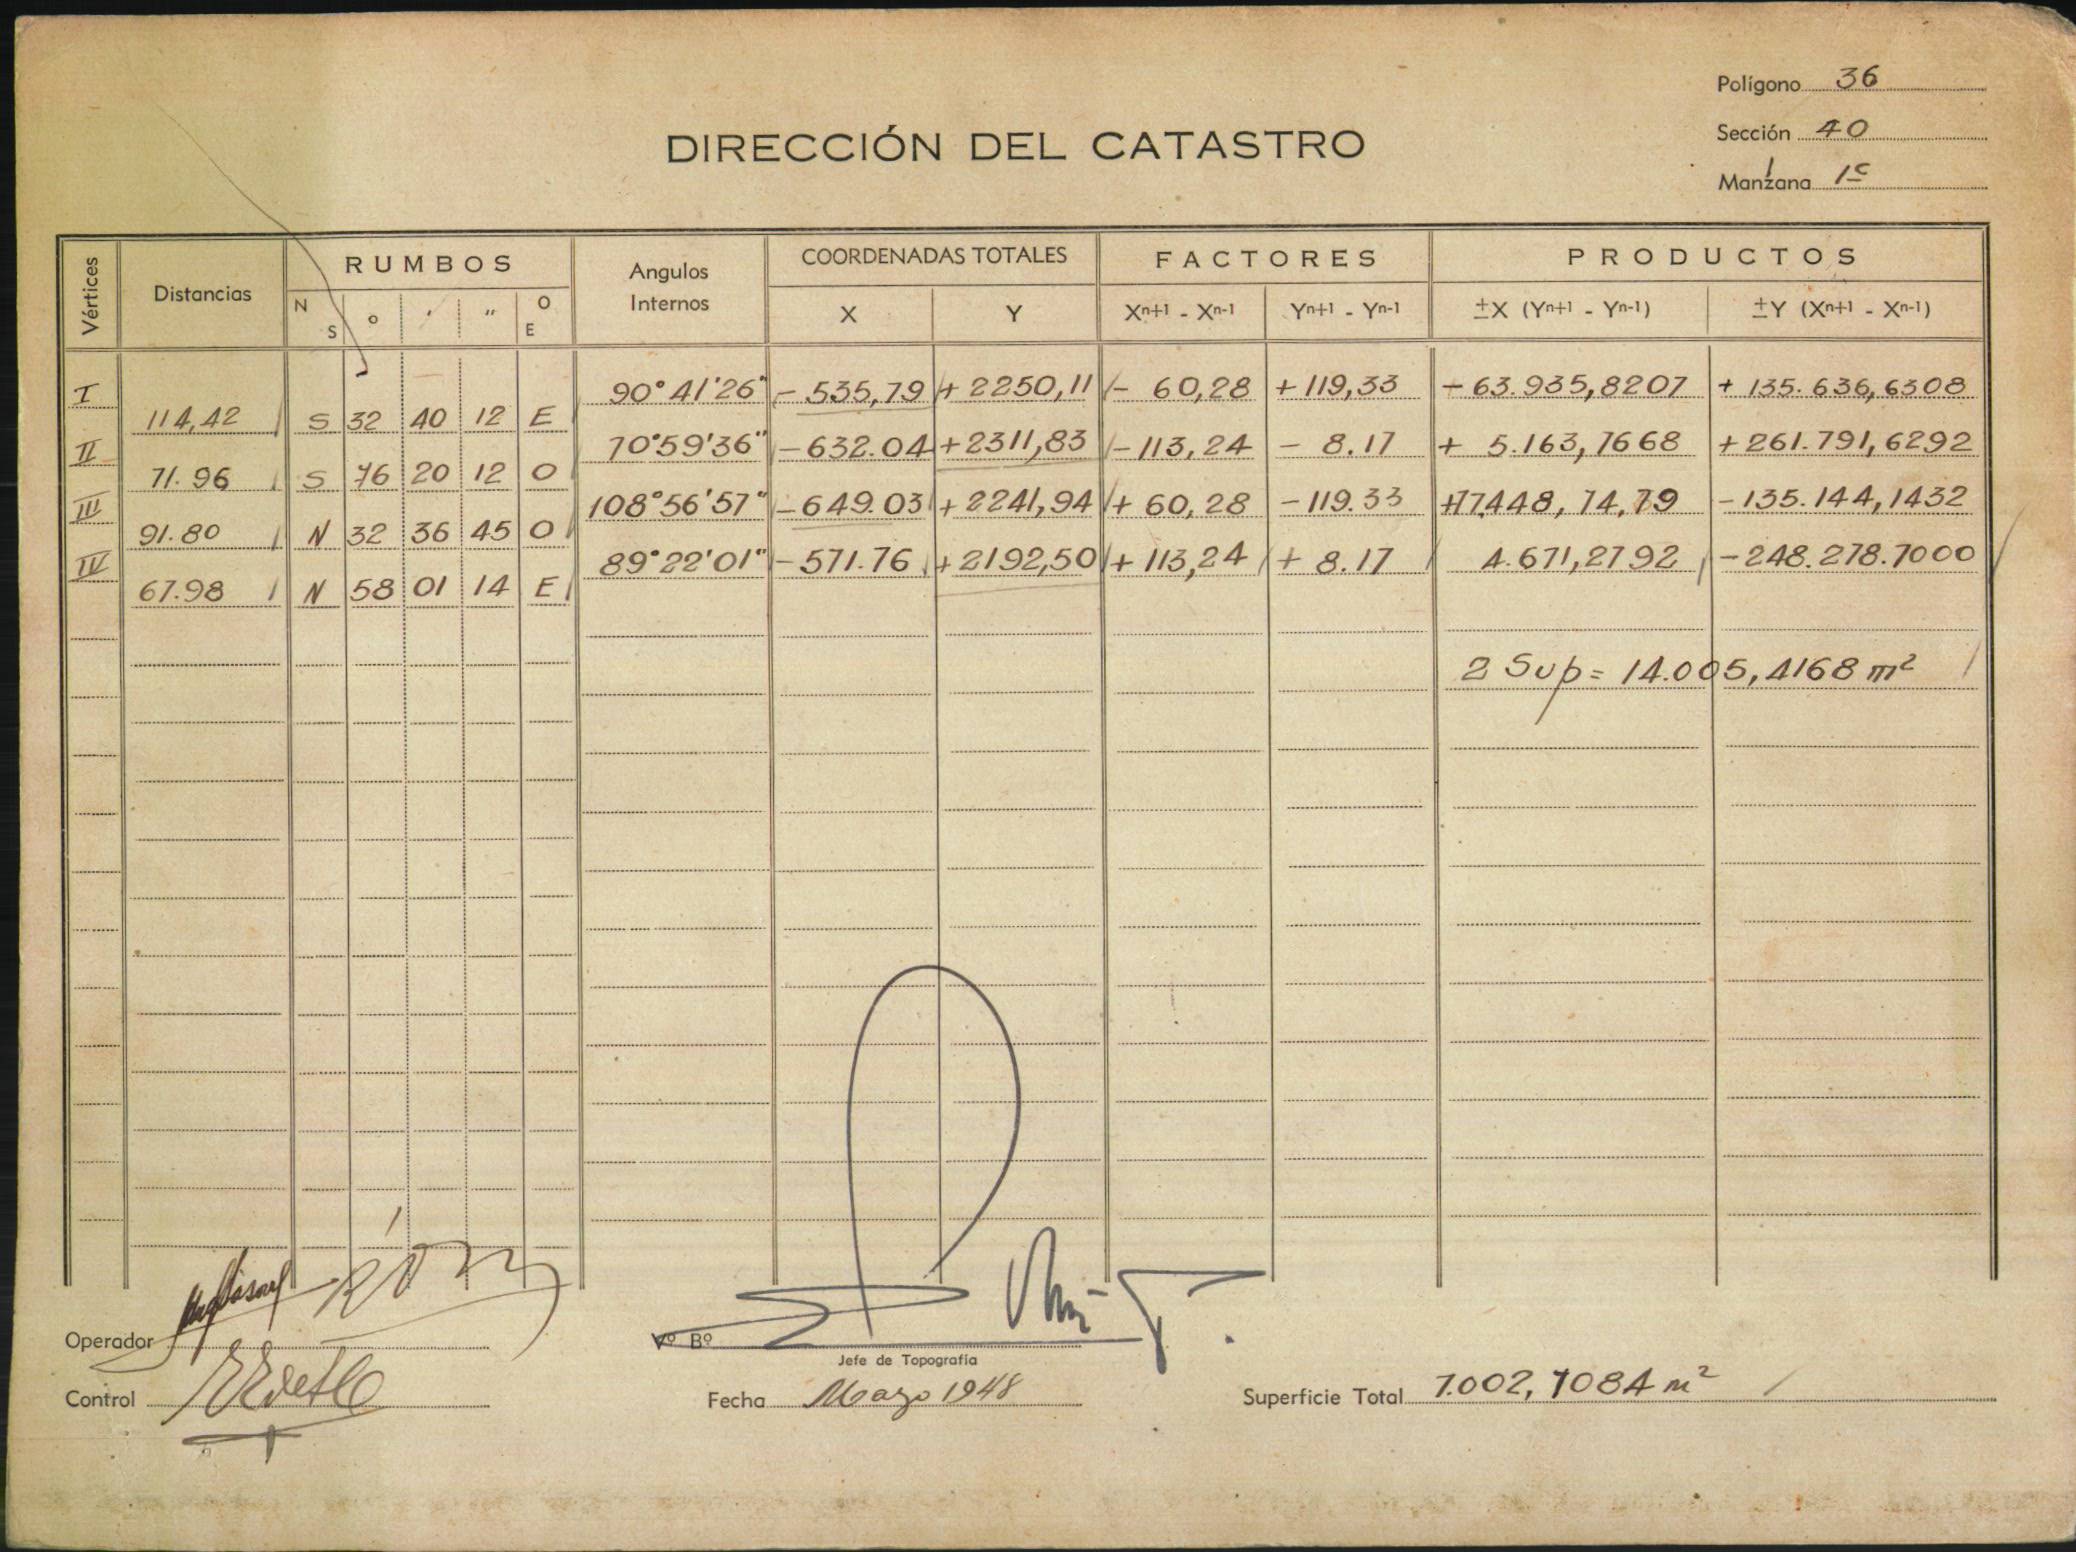 Polígono 36
Sección 40
Manzana 1c
DIRECCIÓN DEL CATASTRO
Vértices Distancias RUMBOS Angulos Internos COORDENADAS TOTALES FACTORES PRODUCTOS
N S ° ' " O E X Y Xn+1 - Xn-1 Yn+1 - Yn-1 ±X (Yn+1 - Yn-1) ±Y (Xn+1 - Xn-1)
I 90°41'26" - 535,79 + 2250,11 - 60,28 + 119,33 - 63.935,8207 + 135.636,6308
114,42 S 32 40 12 E
II 70°59'36" - 632.04 + 2311,83 - 113,24 - 8.17 + 5.163,7668 + 261.791,6292
71.96 S 76 20 12 O
III 108°56'57" - 649.03 + 2241,94 + 60,28 - 119.33 +77.448,74,79 - 135.144,1432
91.80 N 32 36 45 O
IV 89°22'01" - 571.76 + 2192,50 + 113,24 + 8.17 4.671,2792 - 248.278.7000
67.98 N 58 01 14 E
2 Sup = 14.005,4168 m²
Operador
Vº Bº
Jefe de Topografía
Control
Fecha Mayo 1948
Superficie Total 7.002,7084 m²